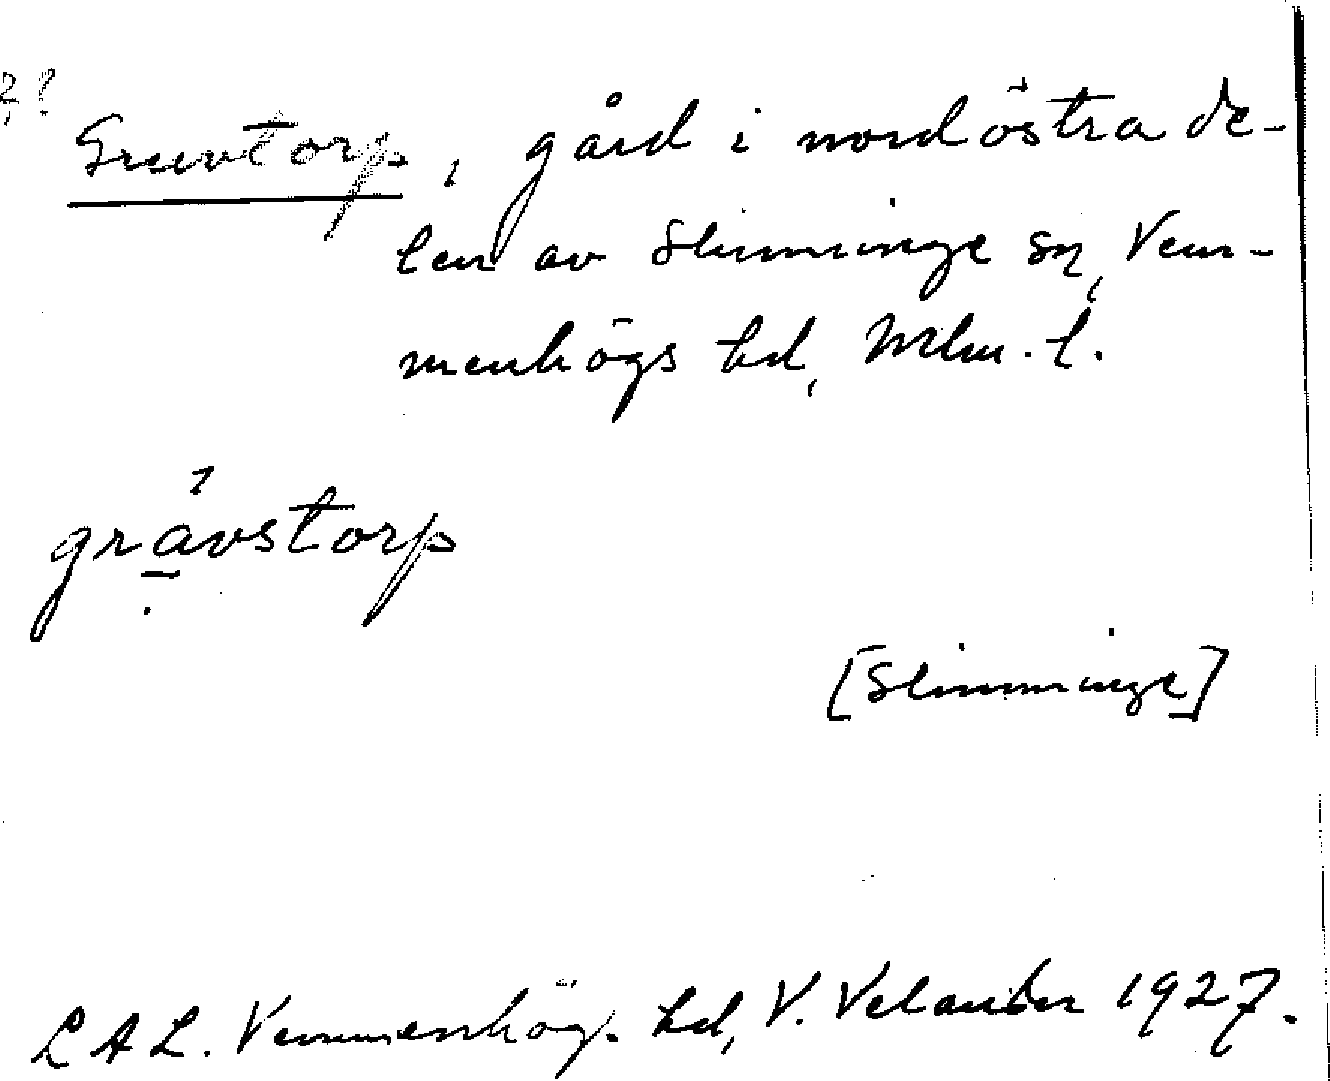 Gruvtorp, gård i nordöstra de-
len av Slimminge sn, Vem-
menhögs hd, Mlm. l.
grávstorp
[Slimminge]
L A L. Vemmenhög. hd, V. Velander 1927.